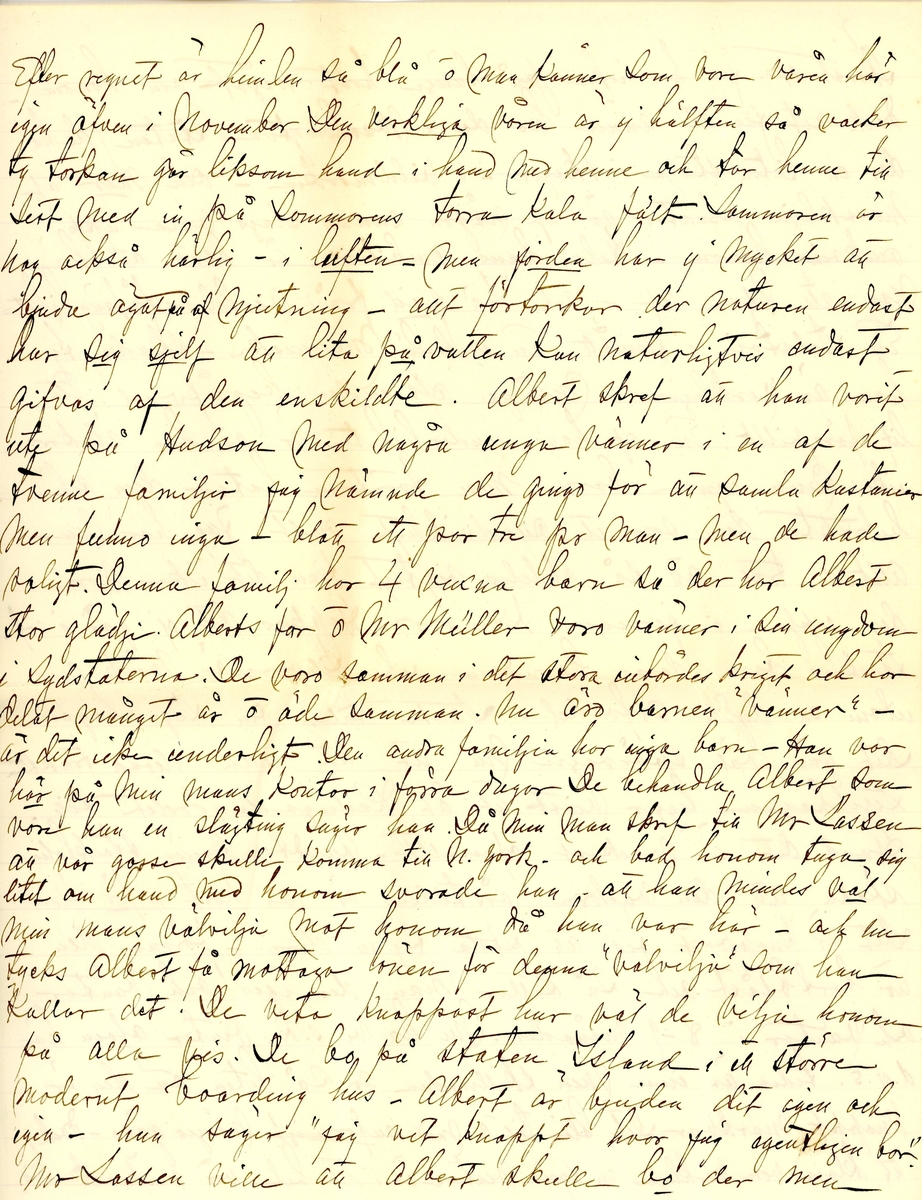 Efter regnet är himlen så blå o man känner som vore våren här
igen äfven i November. Den verkliga våren är ej hälften så vacker
ty torkan går liksom hand i hand med henne och tar henne till
sist med in på sommarens torra kala fält. Sommaren är
nog också härlig - i luften - men jorden har ej mycket att
bjuda ögat på af njutning - allt förtorkar der naturen endast
har sig sjelf att lita på vatten kan naturligtvis endast
gifvas af den enskildte. Albert skref att han varit
ute på Hudson med några unga vänner i en af de
tvenne familjer jag nämnde de gingo för att samla kastanier
men funno inga - blott ett par tre pr man - men de hade
roligt. Denna familj har 4 vuxna barn så der har Albert
stor glädje. Alberts far o Mr Müller voro vänner i sin ungdom
i Sydstaterna. De voro samman i det stora inbördes kriget och har
delat månget år o öde samman. Nu äro barnen "vänner" -
är det icke underligt. Den andra familjen har inga barn - Han var
här på min mans kontor i förra dagar De behandla Albert som
vore han en slägting säger han. Då min man skref till Mr Lassen
att vår gosse skulle komma till N. York - och bad honom taga sig
litet om hand med honom svarade han - att han mindes väl
min mans välvilja mot honom då han var här - och nu
tycks Albert få mottaga lönen för denna "välvilja" som han
kallar det. De veta knappast hur väl de vilja honom
på alla vis. De bo på Staten Island i ett större
modernt boarding hus - Albert är bjuden dit igen och
igen - han säger "jag vet knappt hvar jag egentligen bor."
Mr Lassen ville att Albert skulle bo der men